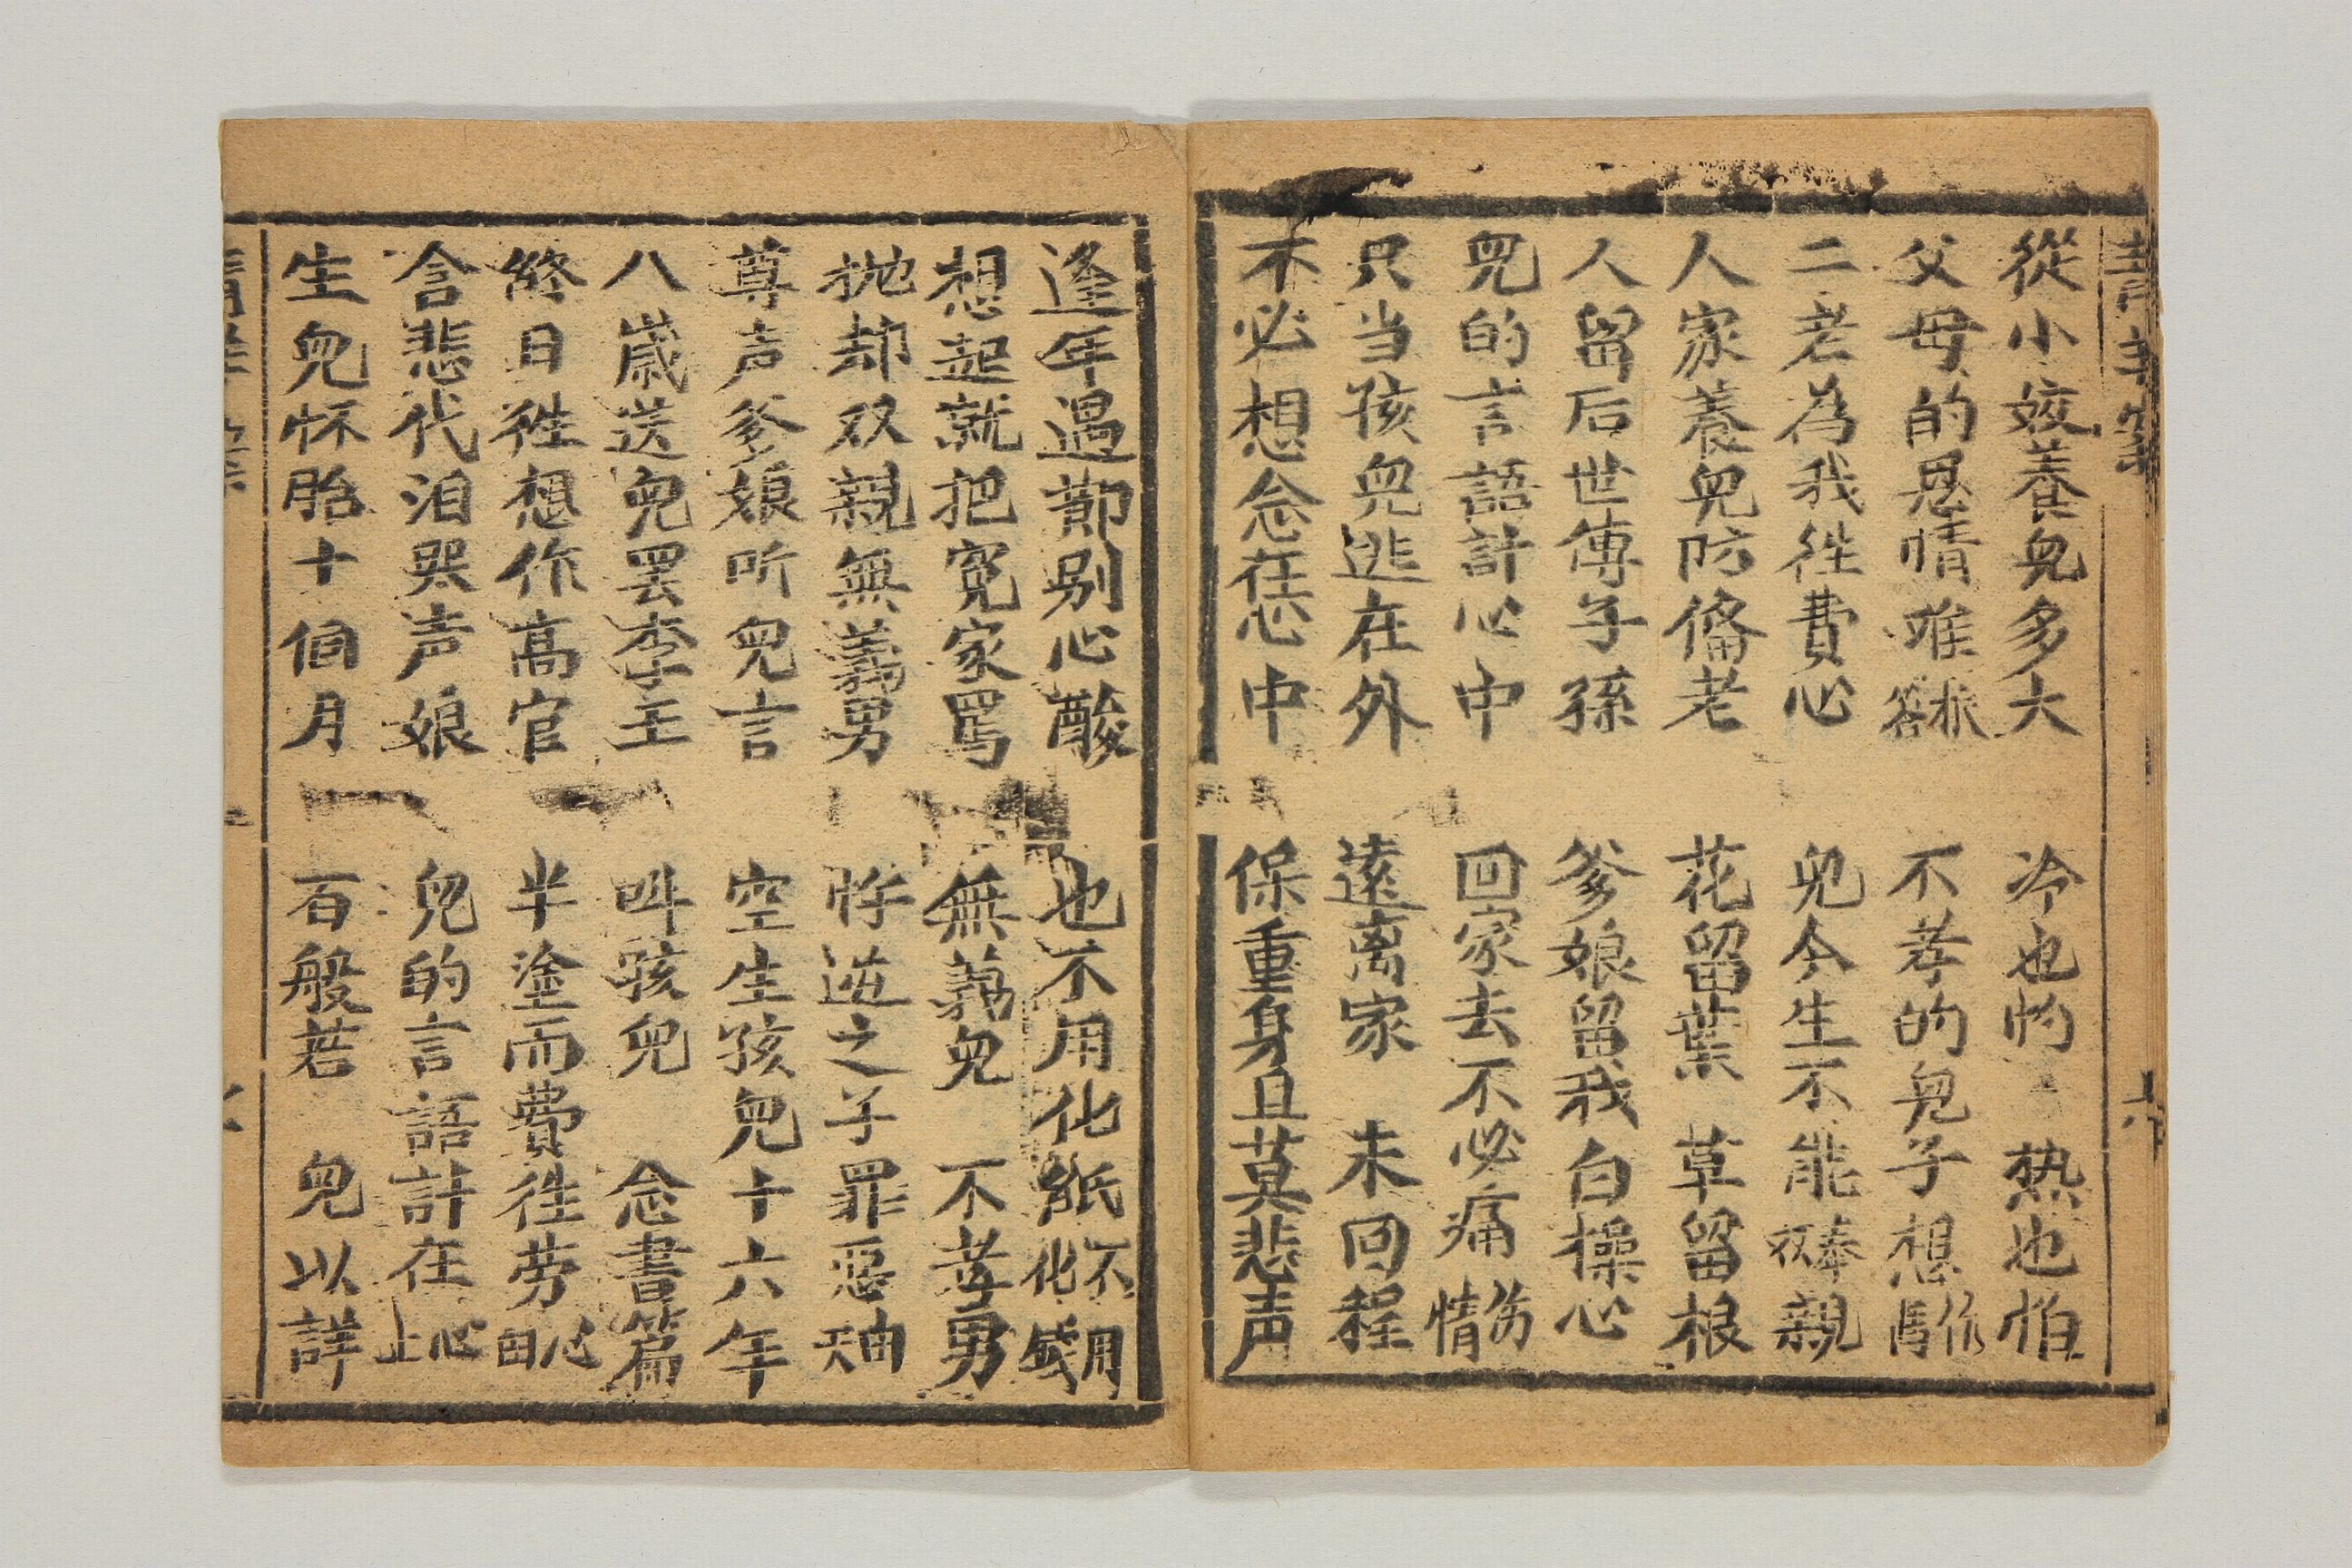 從小姣養兒多大　冷也怕　热也怕
父母的恩情难报答　不孝的兒子想你馬
二老為我徃費心　兒今生不能奉双親
人家養兒防俻老　花留葉　草留根
人留后世傳子孫　爹娘留我白操心
兒的言語計心中　回家去不必痛伤情
只当孩兒逃在外　遠离家　未回程
不必想念在心中　保重身且莫悲声
逢年過節别心酸　也不用化紙不用化錢
想起就把寃家罵　無義兒　不孝男
抛却双親無義男　忤逆之子罪惡由天
尊声爹娘听兒言　空生孩兒十六年
八歲送兒罢李王　呌孩兒　念書篇
終日徃想作高官　半塗而費徃劳心田
含悲代泪哭声娘　兒的言語計在心上
生兒怀胎十個月　百般若　兒以詳